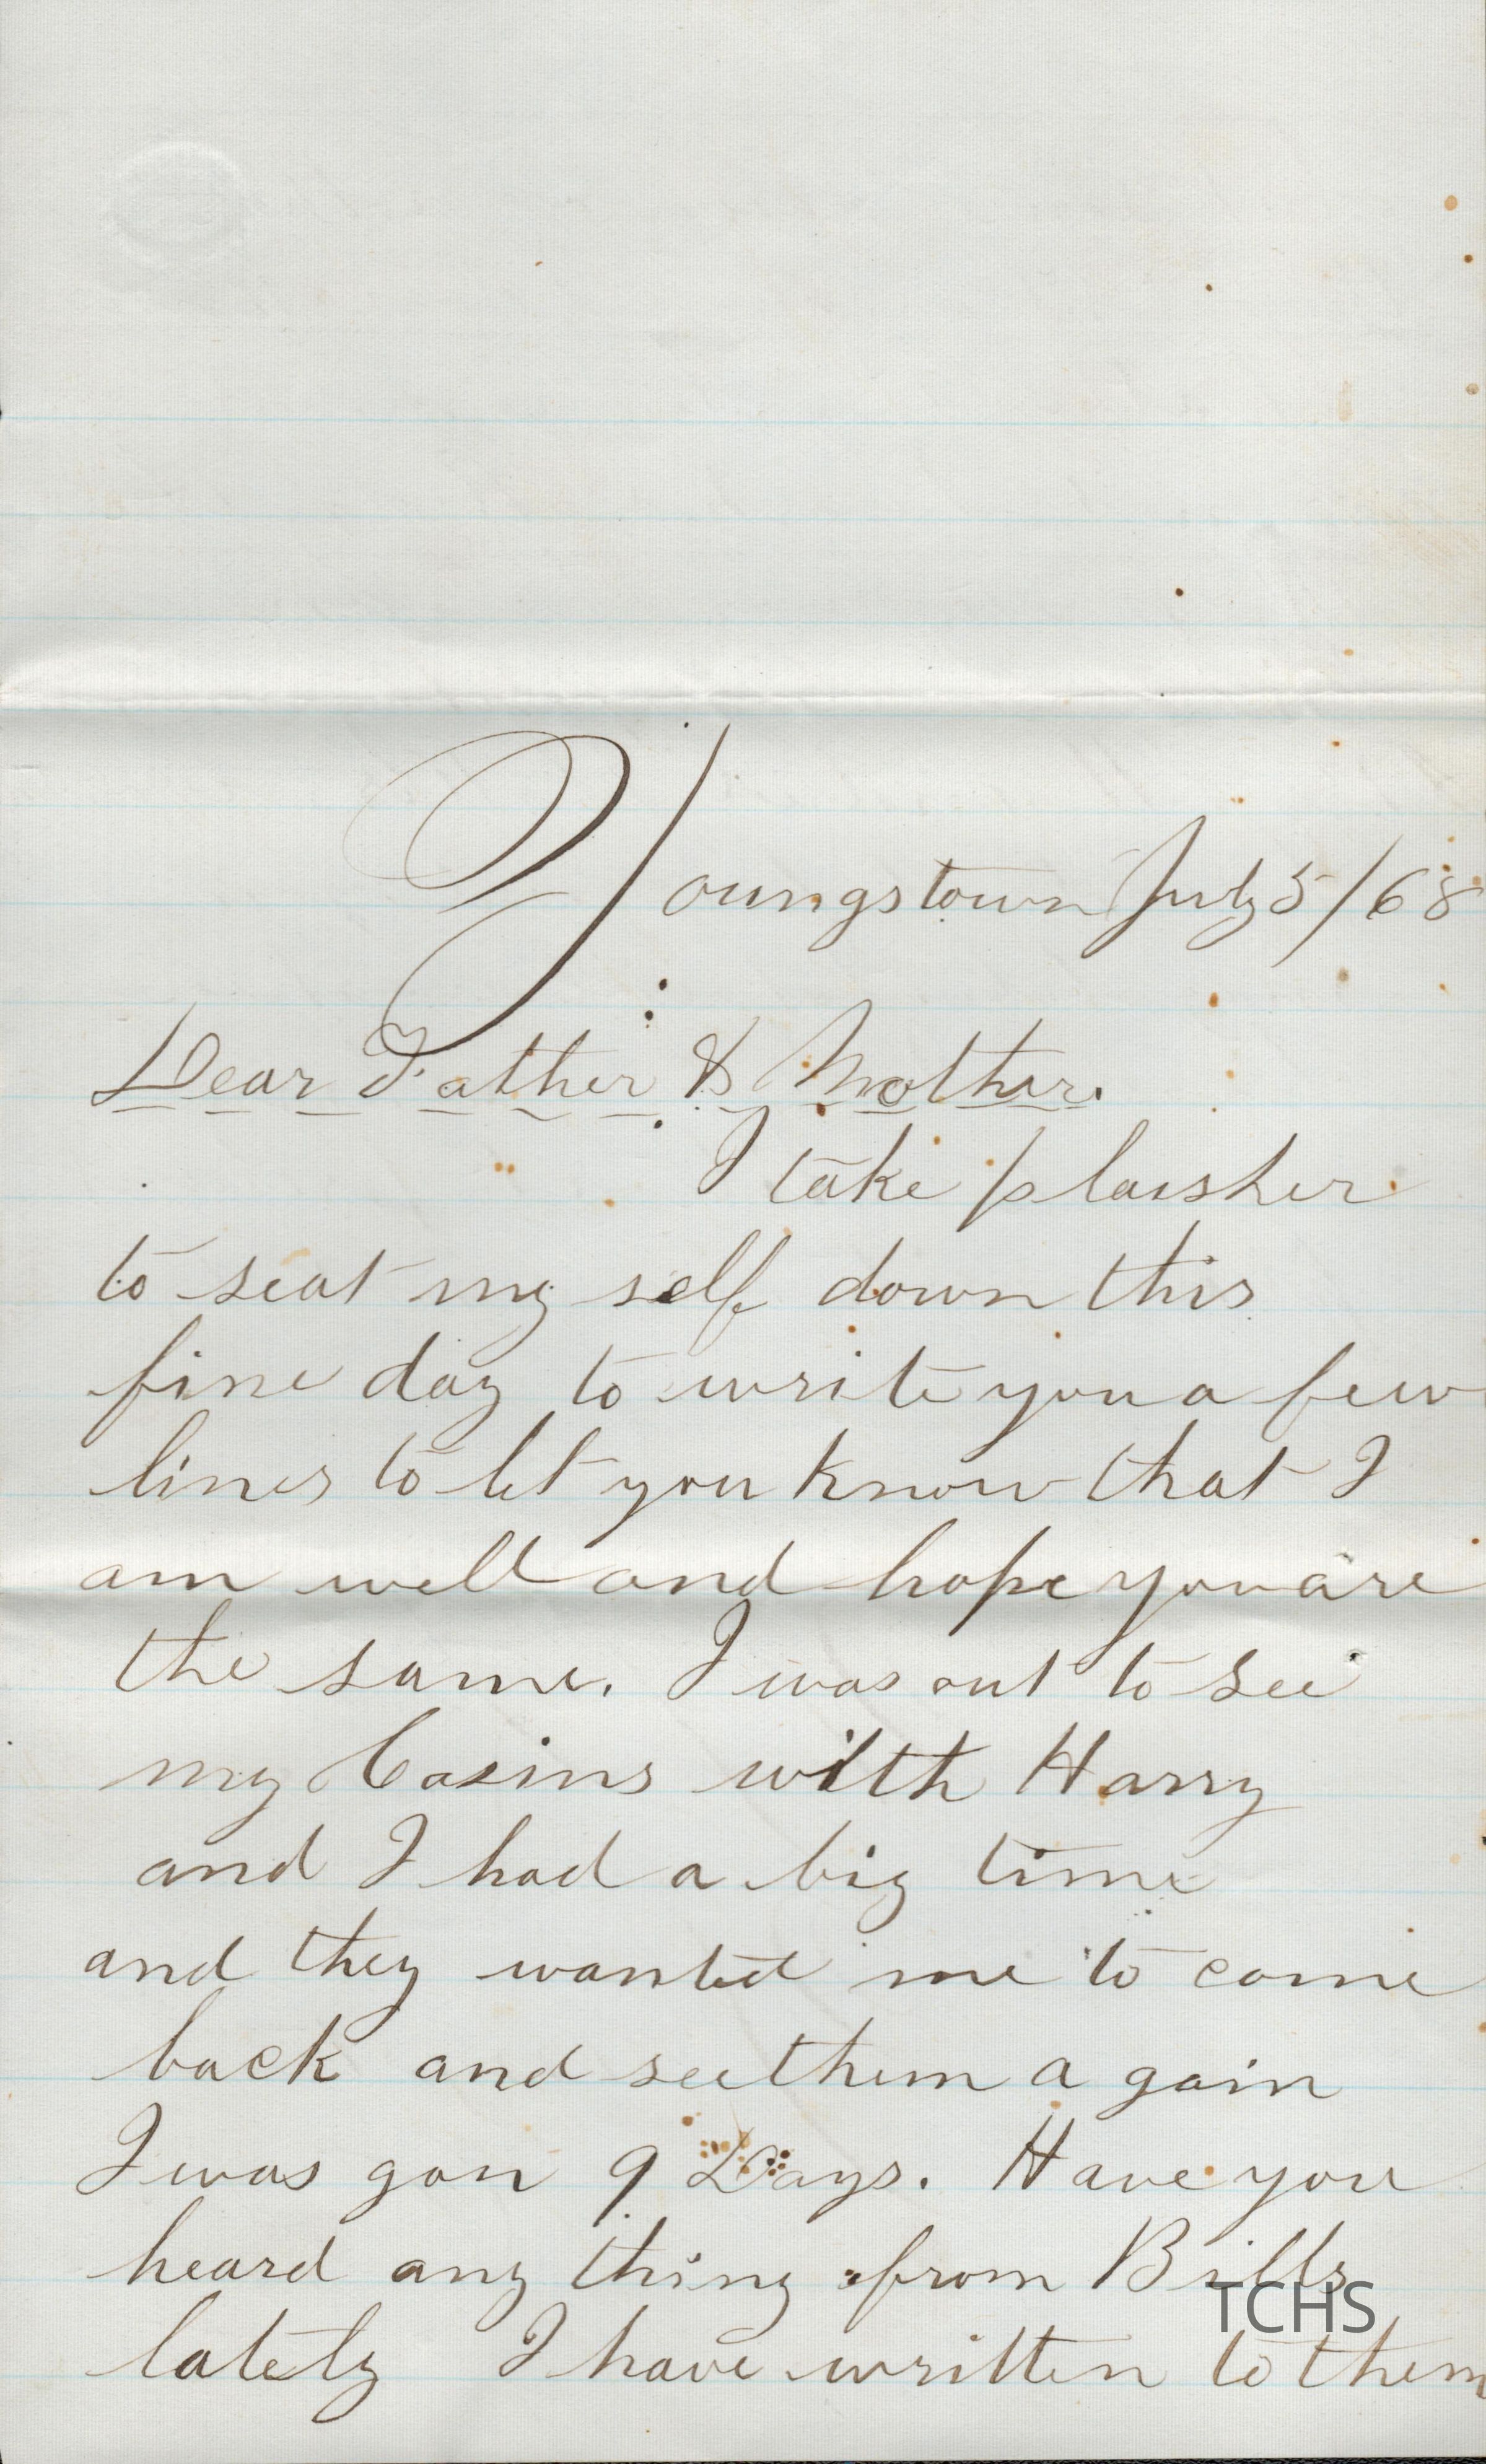 Youngstown July 5/68
Dear Father & Mother.
I take plaisher
to seat my self down this
fine day to write you a few
lines to let you know that I
am well and hope you are
the same. I was out to see
my Cosins with Harry
and I had a big time
and they wanted me to come
back and see them a gain
I was gon 9 Days. Have you
heard any thing from Bills
lately I have written to them
TCHS